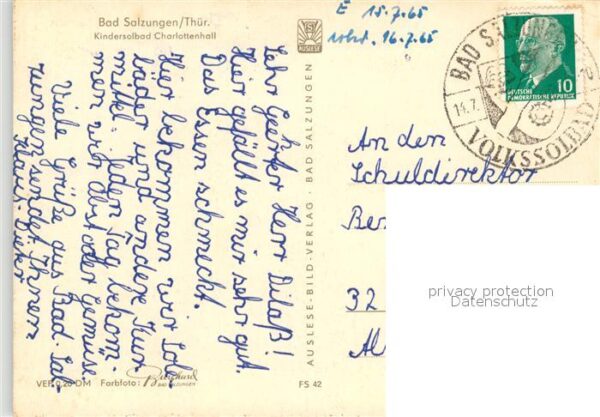 Bad Salzungen/Thür.
Kindersolbad Charlottenhall
E 15.7.65
16.7.65
AUSLESE
BAD SALZUNGEN
VOLKSSOLBAD
14.7.
10
DEUTSCHE
DEMOKRATISCHE REPUBLIK
Sehr Geehrter Herr Dilaß!
Hier gefällt es mir sehr gut.
Das Essen schmeckt.
Hier bekommen wir Sole
bäder und andere Kur
mittel. Jeden Tag bekom-
men wir Obst oder Gemüse.
Viele Grüße aus Bad Sal-
zungen sendet Ihnen
Klaus-Dieter
AUSLESE-BILD-VERLAG · BAD SALZUNGEN
An den
Schuldirektor
32
privacy protection
Datenschutz
VEP 0,20 DM Farbfoto:
BAD SALZUNGEN
FS 42